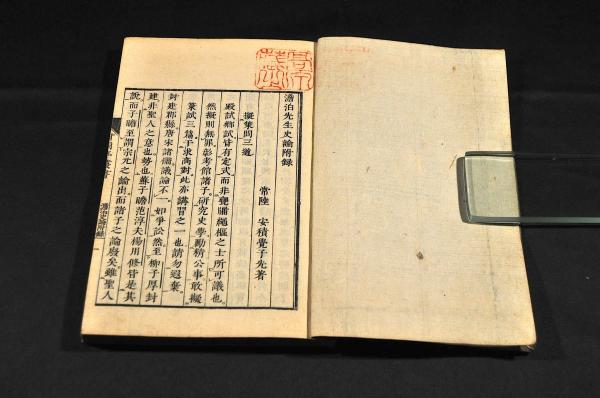 澹泊先生史論附錄
常陸 安積覺子先著
擬策問三道
殿試鄉試皆有定式而非甕牖繩樞之士所可議也
然擬則無罪彰考館諸子研究史學勤稍公事敢擬
策試三篇干求高對此亦講習之一也請勿遐棄
封建郡縣唐宋諸儒議論不一如爭訟然至柳子厚封
建非聖人之意也勢也蘇子瞻范淳夫楊用修皆是其
說而子瞻至謂宗元之論出而諸子之論廢矣雖聖人